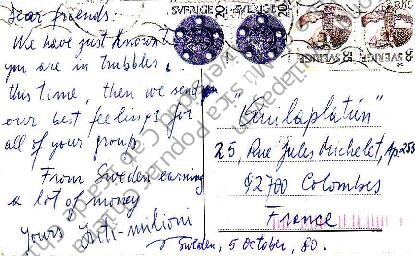 Dear friends.
We have just knownt
you are in trubbles
this time, then we send
our best feelings for
all of your group
From Sweden earning
a lot of money
Yours Inti-milioni
SVERIGE 20
SVERIGE 20
SVERIGE
SVERIGE
"Quilapatún"
25, Rue Jules Michelet, Ap. 253
92700 Colombes
France
Sweden, 5 October, 80.